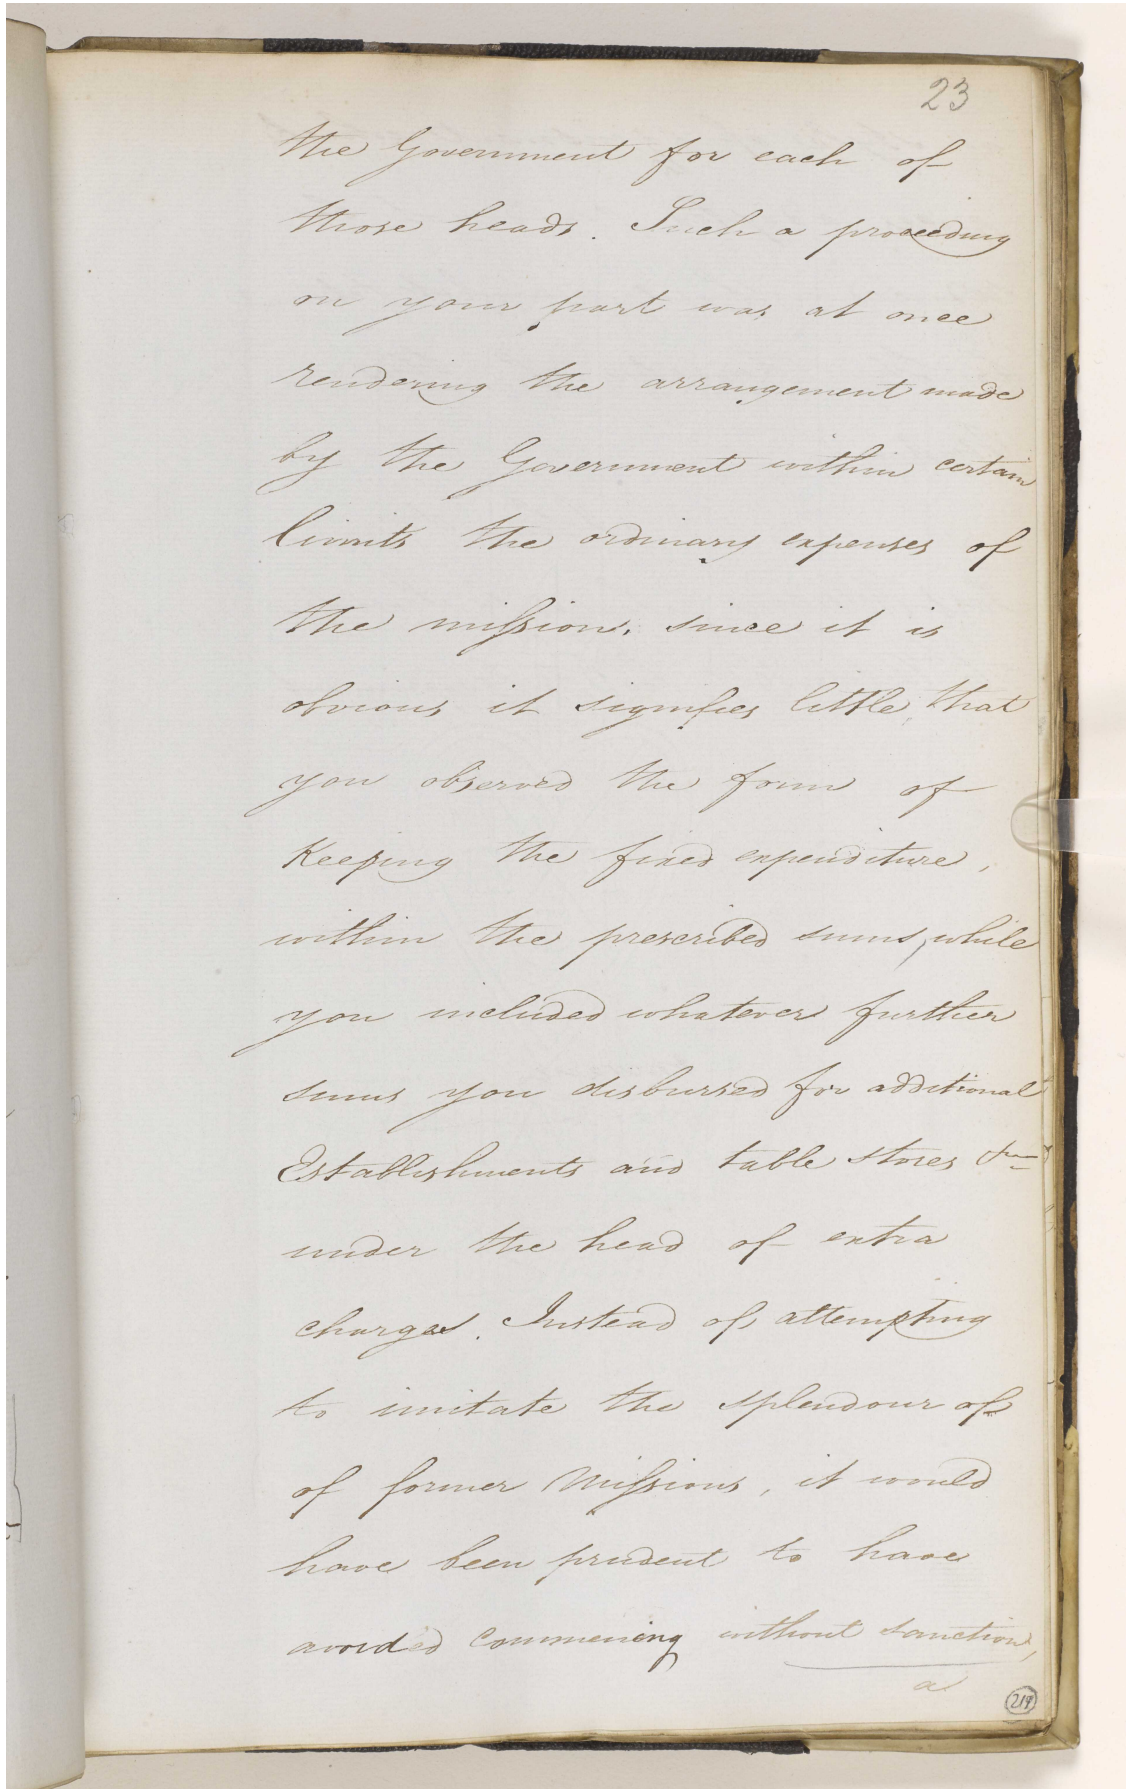 23
the Government for each of
those heads. Such a proceeding
on your part was at once
rendering the arrangement made
by the Government within certain
limits the ordinary expenses of
the mission, since it is
obvious it signifies little, that
you observed the form of
Keeping the fixed expenditure,
within the prescribed sums, while
you included whatever further
sums you disbursed for additional
Establishments and table stores
under the head of extra
charges. Instead of attempting
to imitate the splendour of
of former Missions, it would
have been prudent to have
avoided commencing without sanction,
a
219